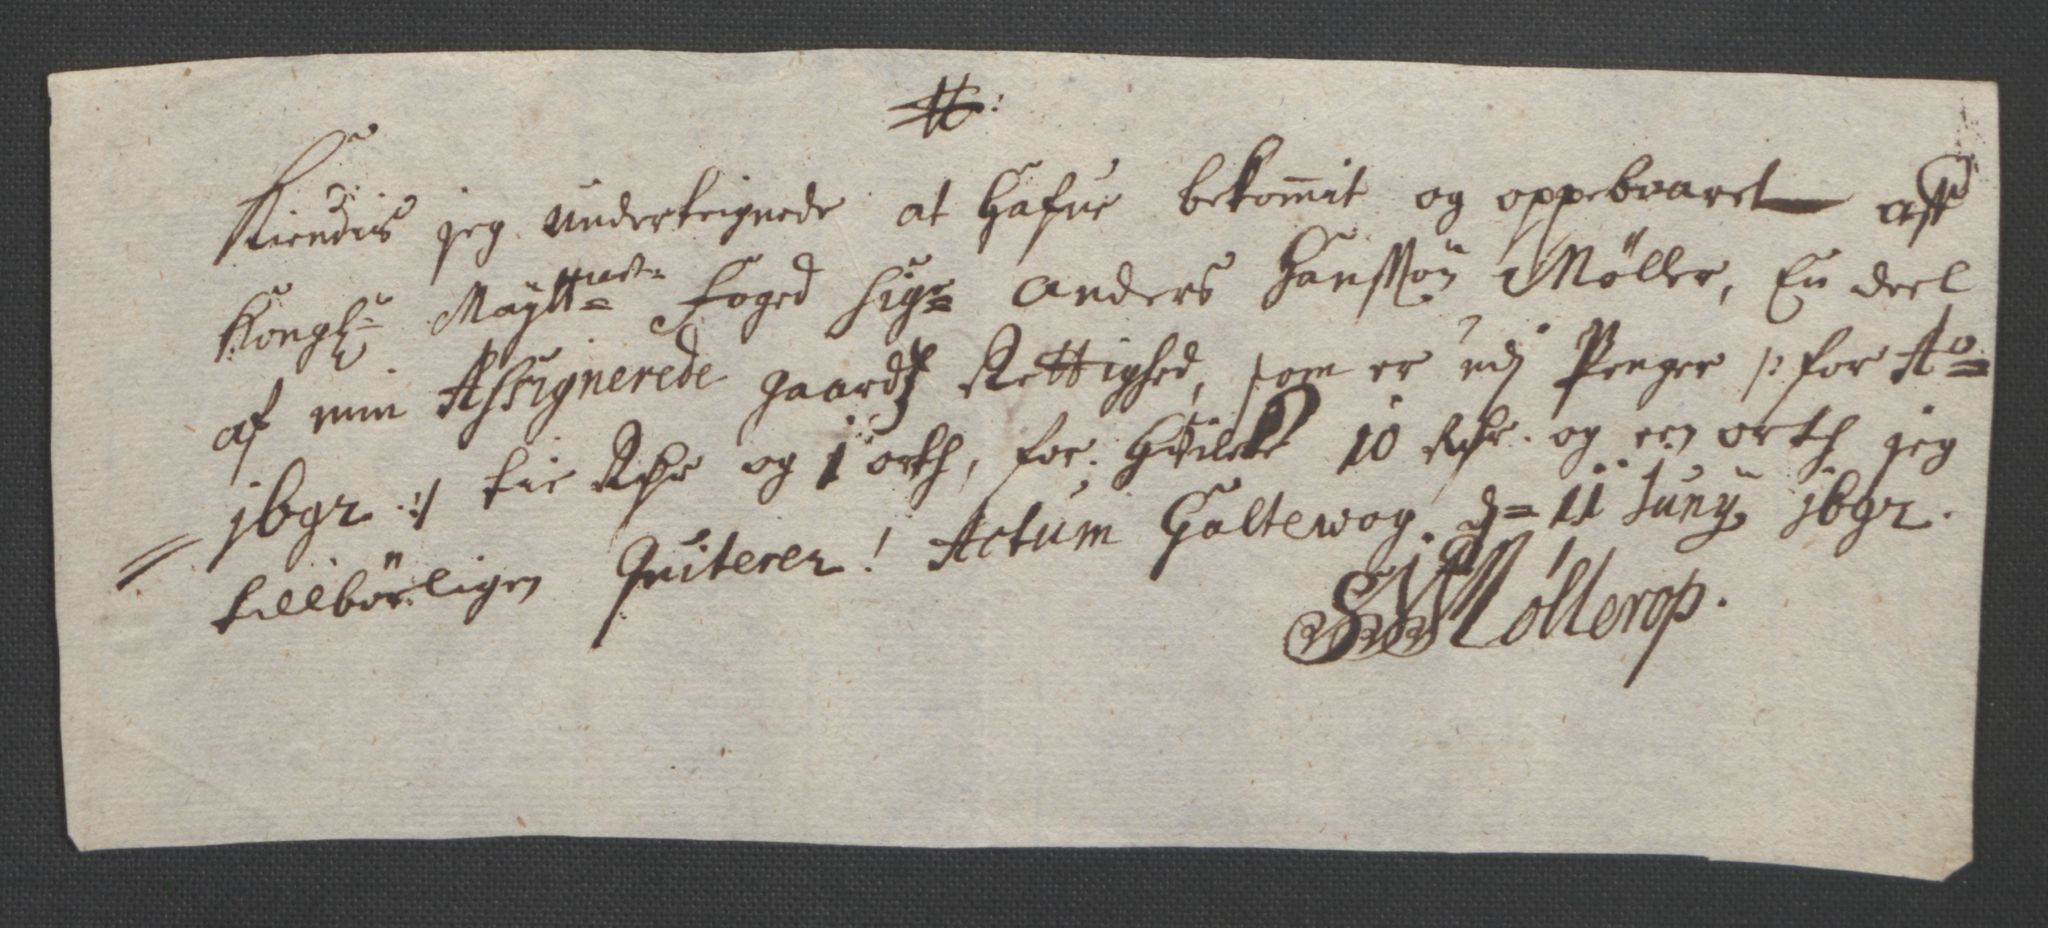 Kiendis jeg underteignede at hafue bekommit og oppebaaret aff
Kongl: Maytts Foged Sigr Anders Hanssøn Møller, En deel
af min Assignerede gaards Rettighed, som er udj Penger /: for Ao
j692 :/ tie Rdr og 1 orth, for huilcke 10 Rdr. og een orth jeg
tilbörligen Quiterer! Actum Galtewog. d= 11 Juny j692.
Möllerop.